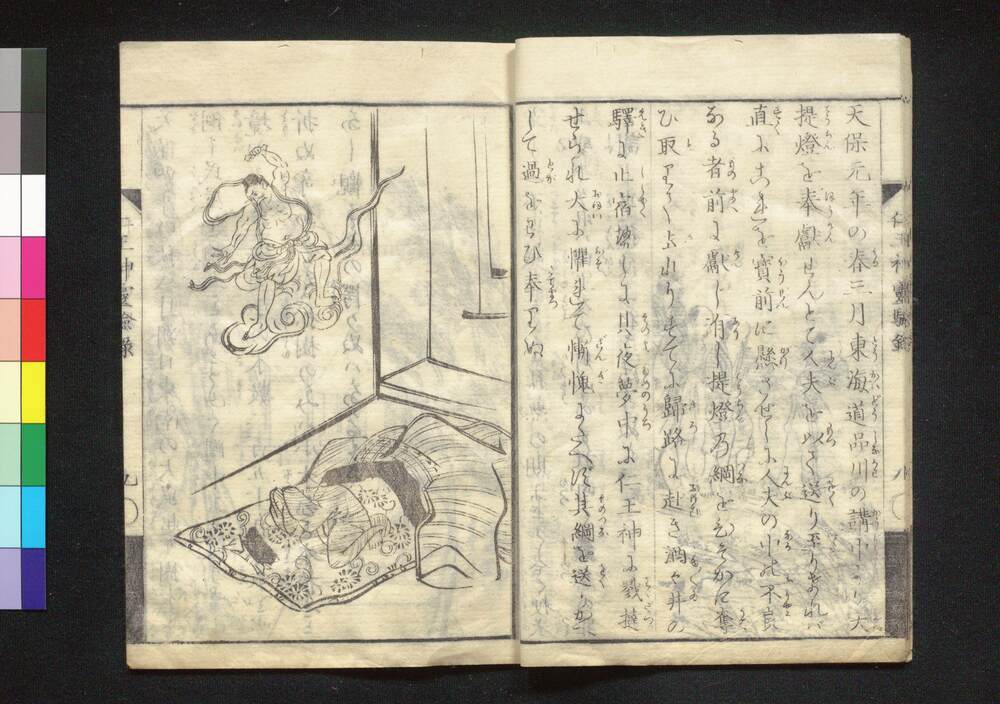 天保元年の春三月東海道品川の講中より大
提燈を奉獻せんとて人夫を以て送り来りければ
直に是を寳前に懸させしに人夫の中に不良
なる者前に獻じ有し提燈乃綱をひそかに奪
ひ取りて立出り其より歸路に赴き酒々井の
驛に止宿せしに其夜夢中に仁王神に戮撻
せられ大に懼れて慚愧にたへず其綱を送り返
して過をわび奉りぬ
仁王神靈驗錄
八
仁王神靈驗錄
九